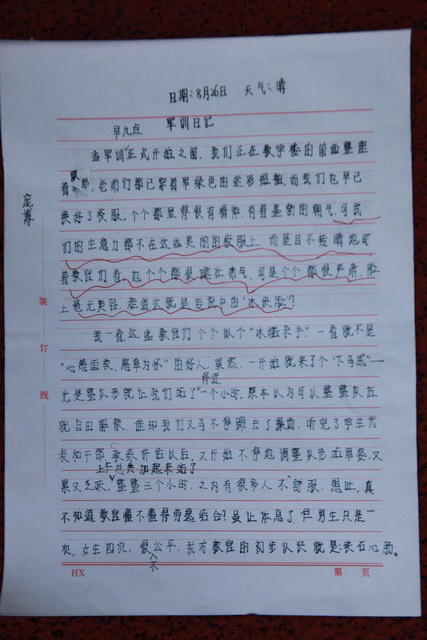 日期：8月26日 天气：晴
早九点 军训日记
当军训正式开始之前，我们正在教学楼的前面整理
着队形，老师们都已穿着军绿色的迷彩短袖，而我们也早已
换好了校服，个个都显得很有精神，有着蓬勃的朝气，可我
们的注意力都不在这些美的校服上，而是目不转睛地盯
着教官们看，他个个都很健壮帅气，可是个个都很严肃，脸
上毫无笑容，难道这就是传说中的"冰美服"？
我一看这些教官们个个似个"冰雕杀手"，一看就不是
"心慈面软，慈举为怀"的好人，果然，一开始就来了个"下马威"——
光是整队形就让我们站了将近一个小时，原本以为可以整整队伍
就自由解散，谁知我们又马不停蹄去了操场，听完了学生代
表和干部教官讲话以后，又开始不停地调整队形和军姿，又
累又乏味，上午总共加起来站了整整三个小时，之内有很多人不舒服，想吐，真
不知道教官懂不懂得劳逸结合？虽让休息了但男生只是一
次，女生四次，很不公平，我对教官的初步认识就是：表在心颜。
庞博
装
订
线
HX 第 页